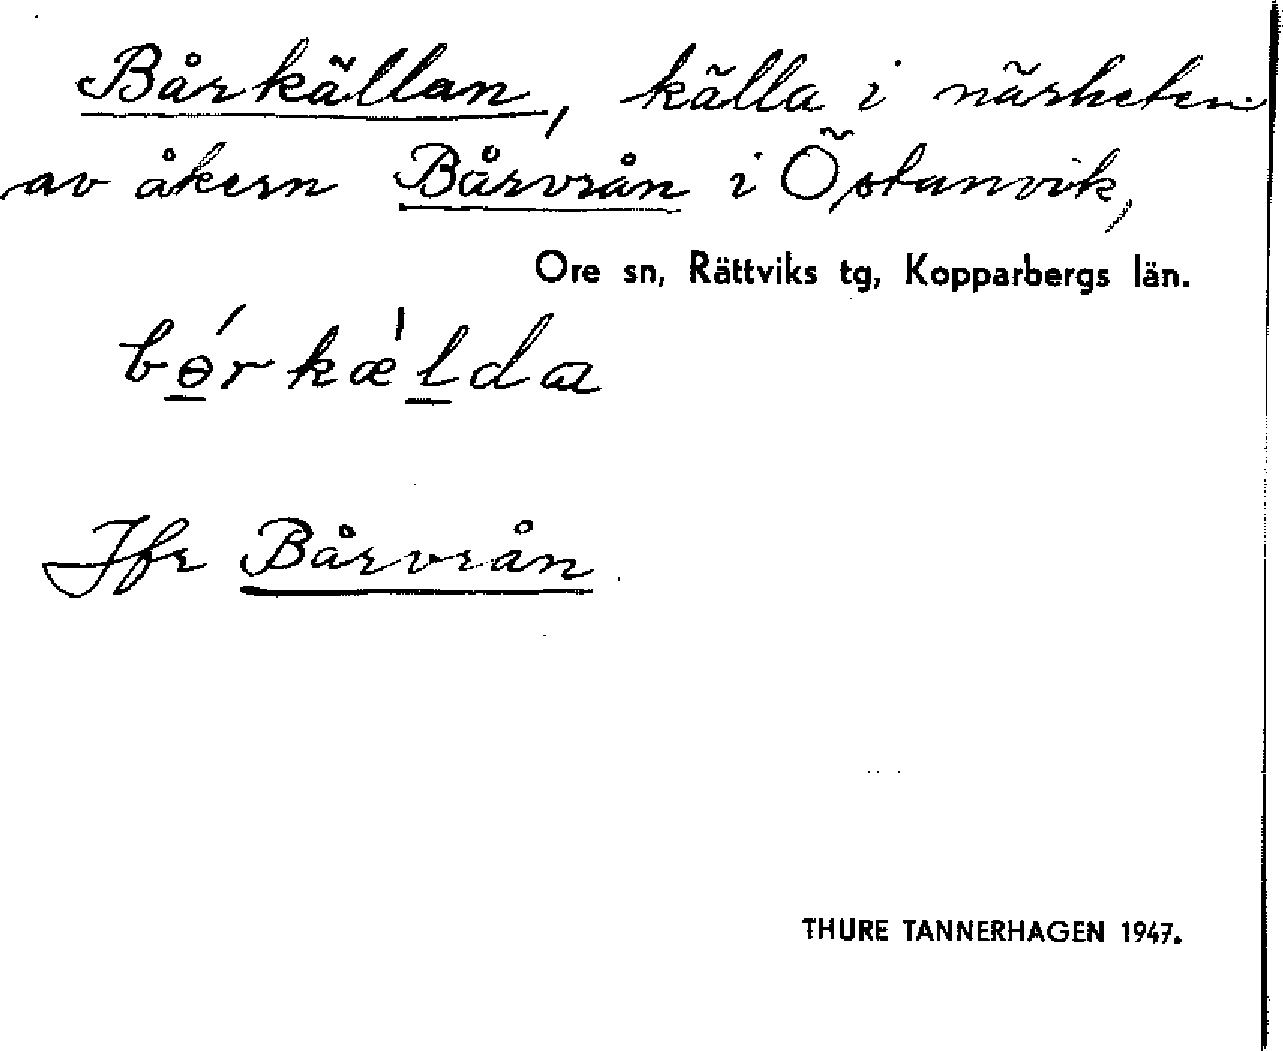 Bårkällan, källa i närheten
av åkern Bårvrån i Östanvik,
Ore sn, Rättviks tg, Kopparbergs län.
bɵ́rkæ̀lda
Jfr Bårvrån
THURE TANNERHAGEN 1947.